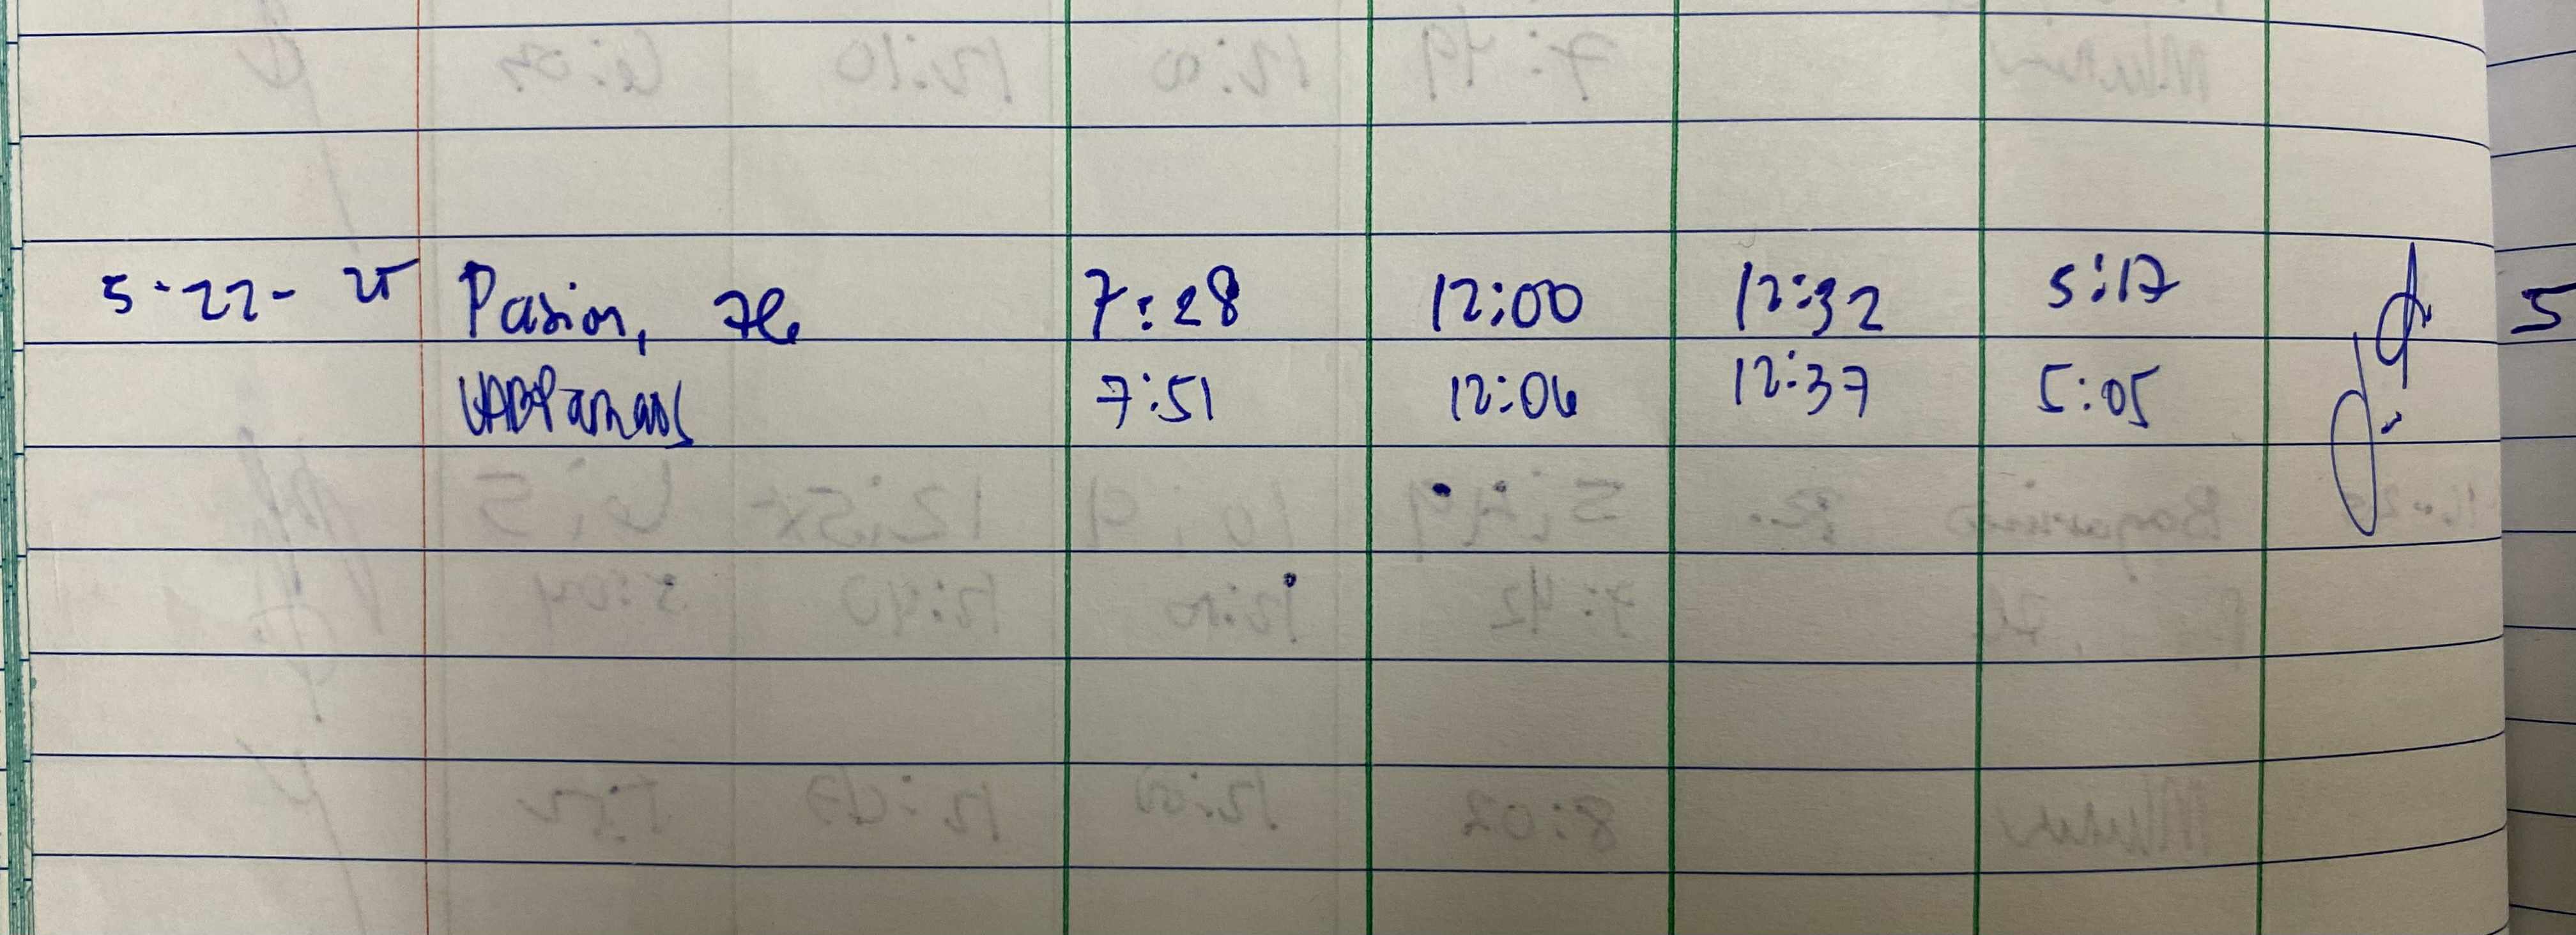 5-22-25 Pasion, Ze 7:28 12:00 12:32 5:17
7:51 12:06 12:37 5:05
5